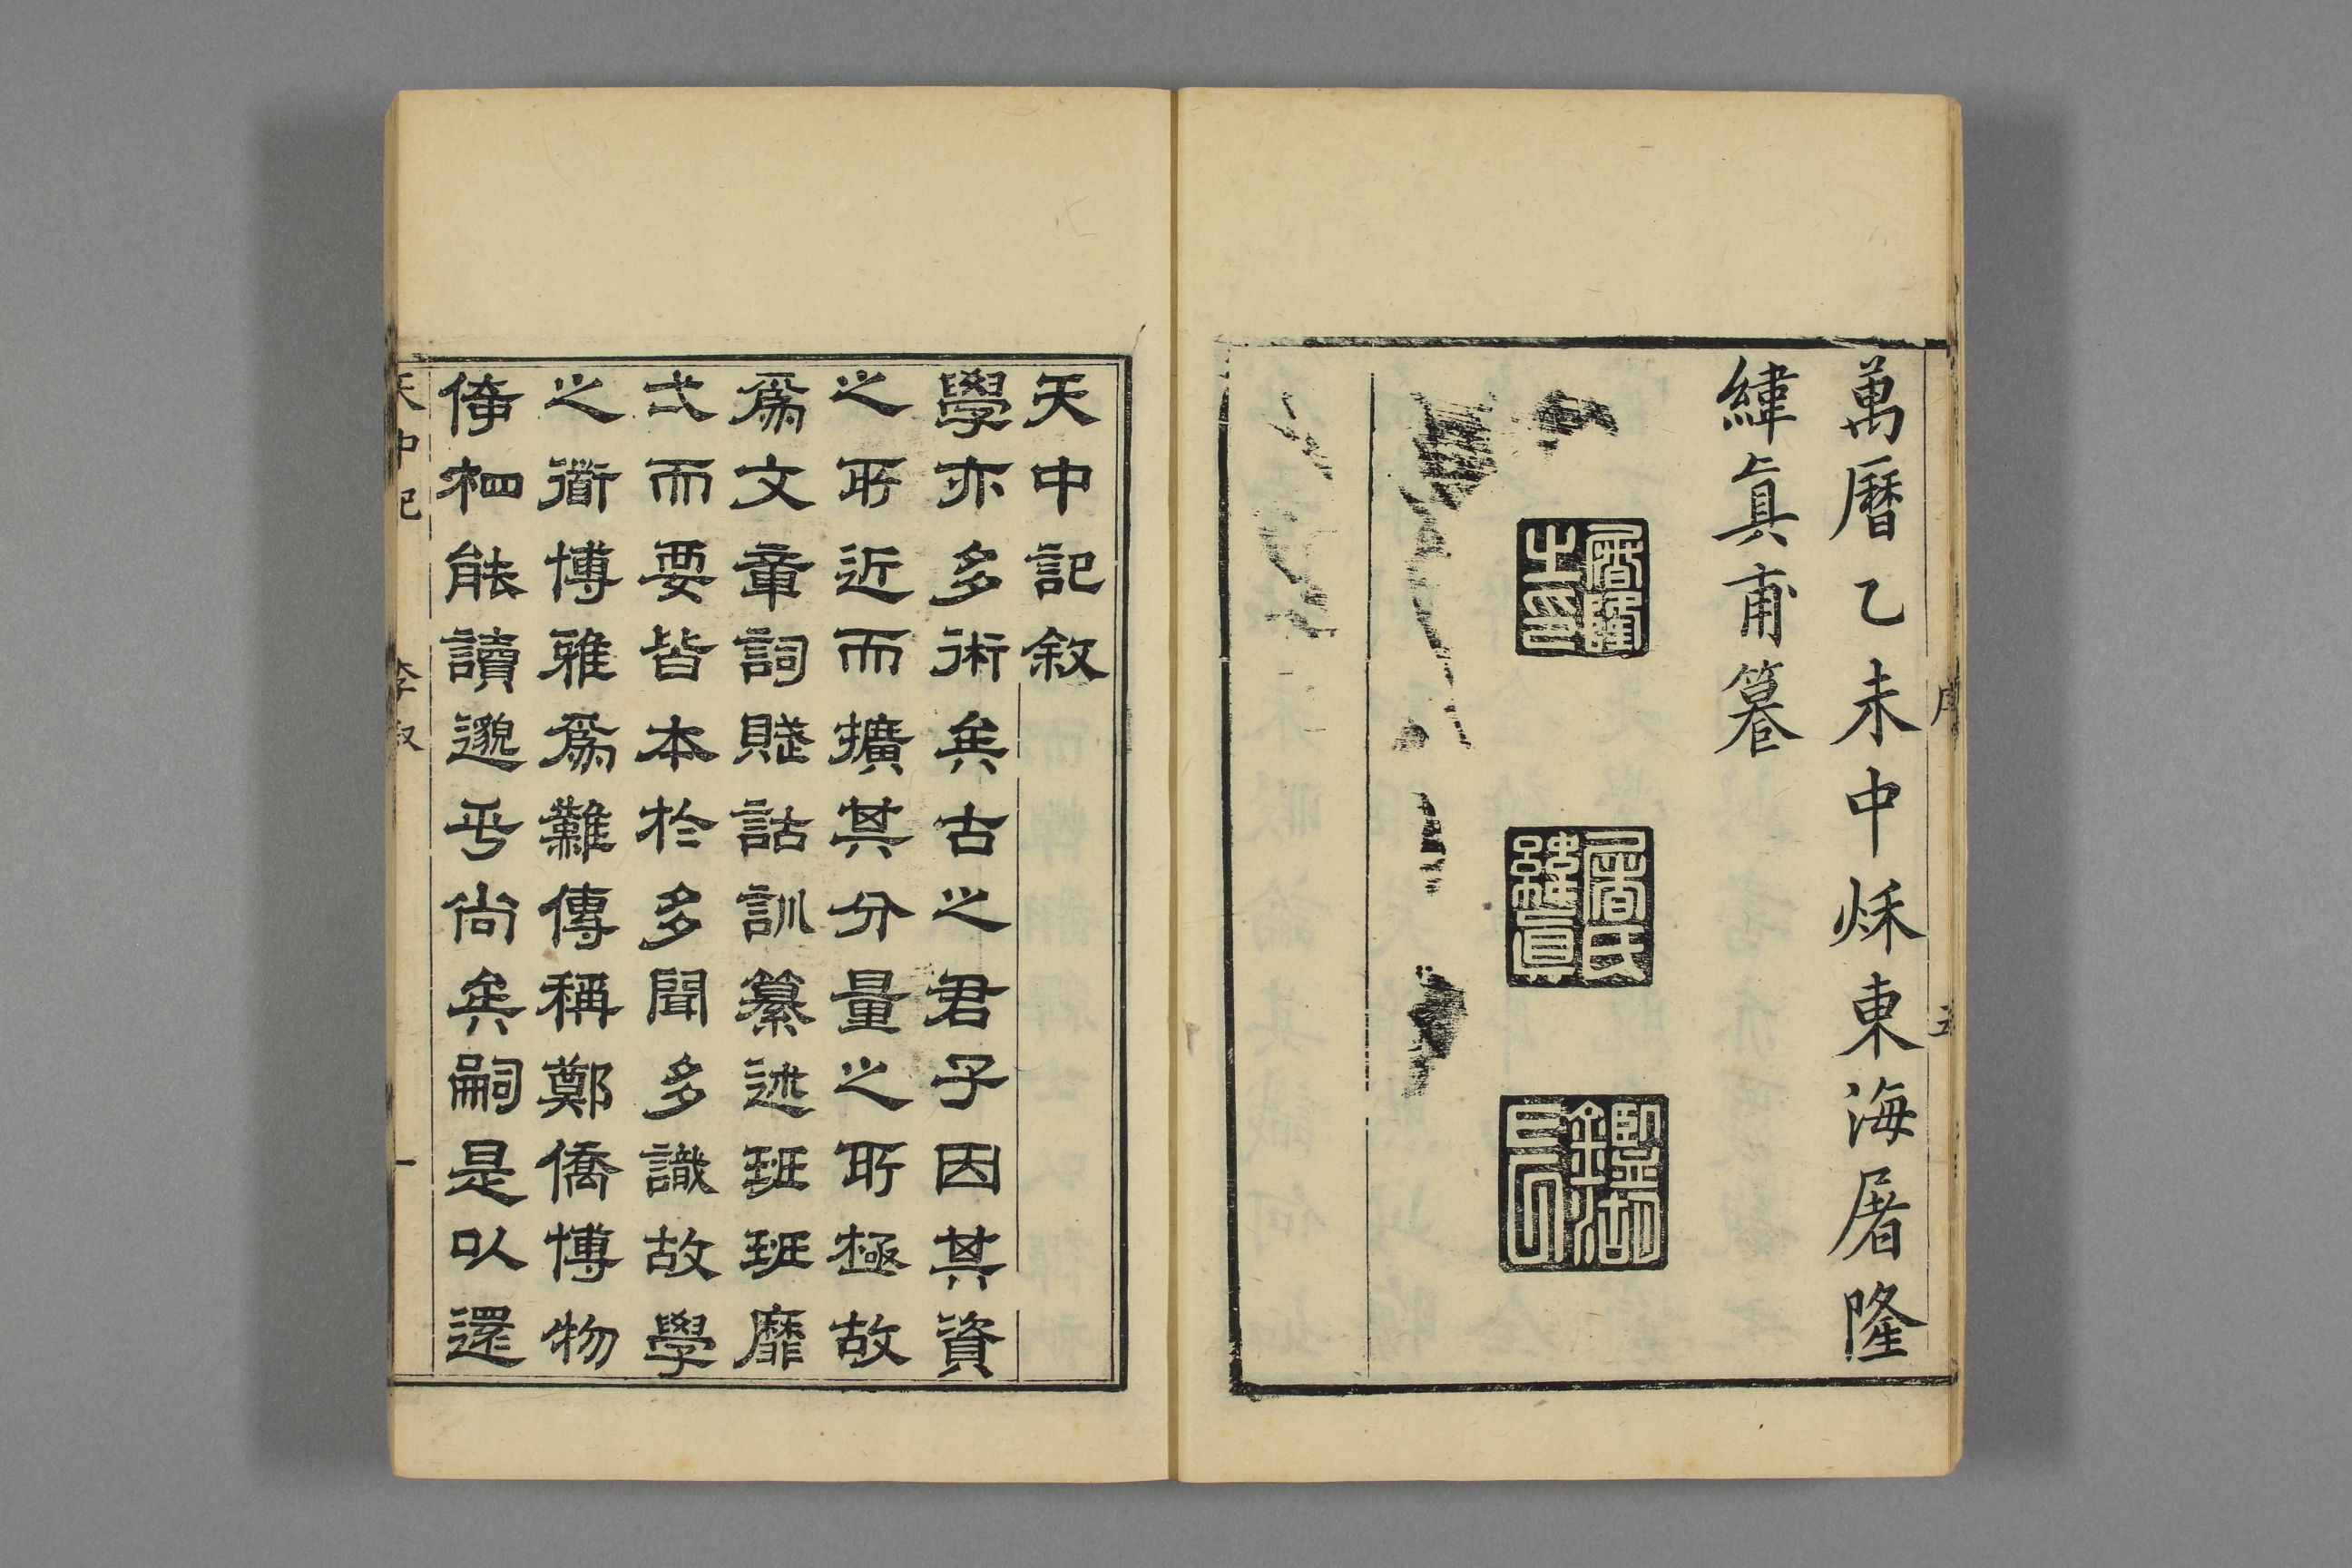 萬曆乙未中秌東海屠隆
緯眞甫篹
屠隆之印
屠氏緯眞
天中記敘
學亦多術矣古之君子因其資
之所近而擴其分量之所極故
爲文章詞賦詁訓纂述班班靡
弌而要皆本於多聞多識故學
之衜博雅爲難傳稱鄭僑博物
倚相能讀邈乎尚矣嗣是以還
天中記
李敘
一